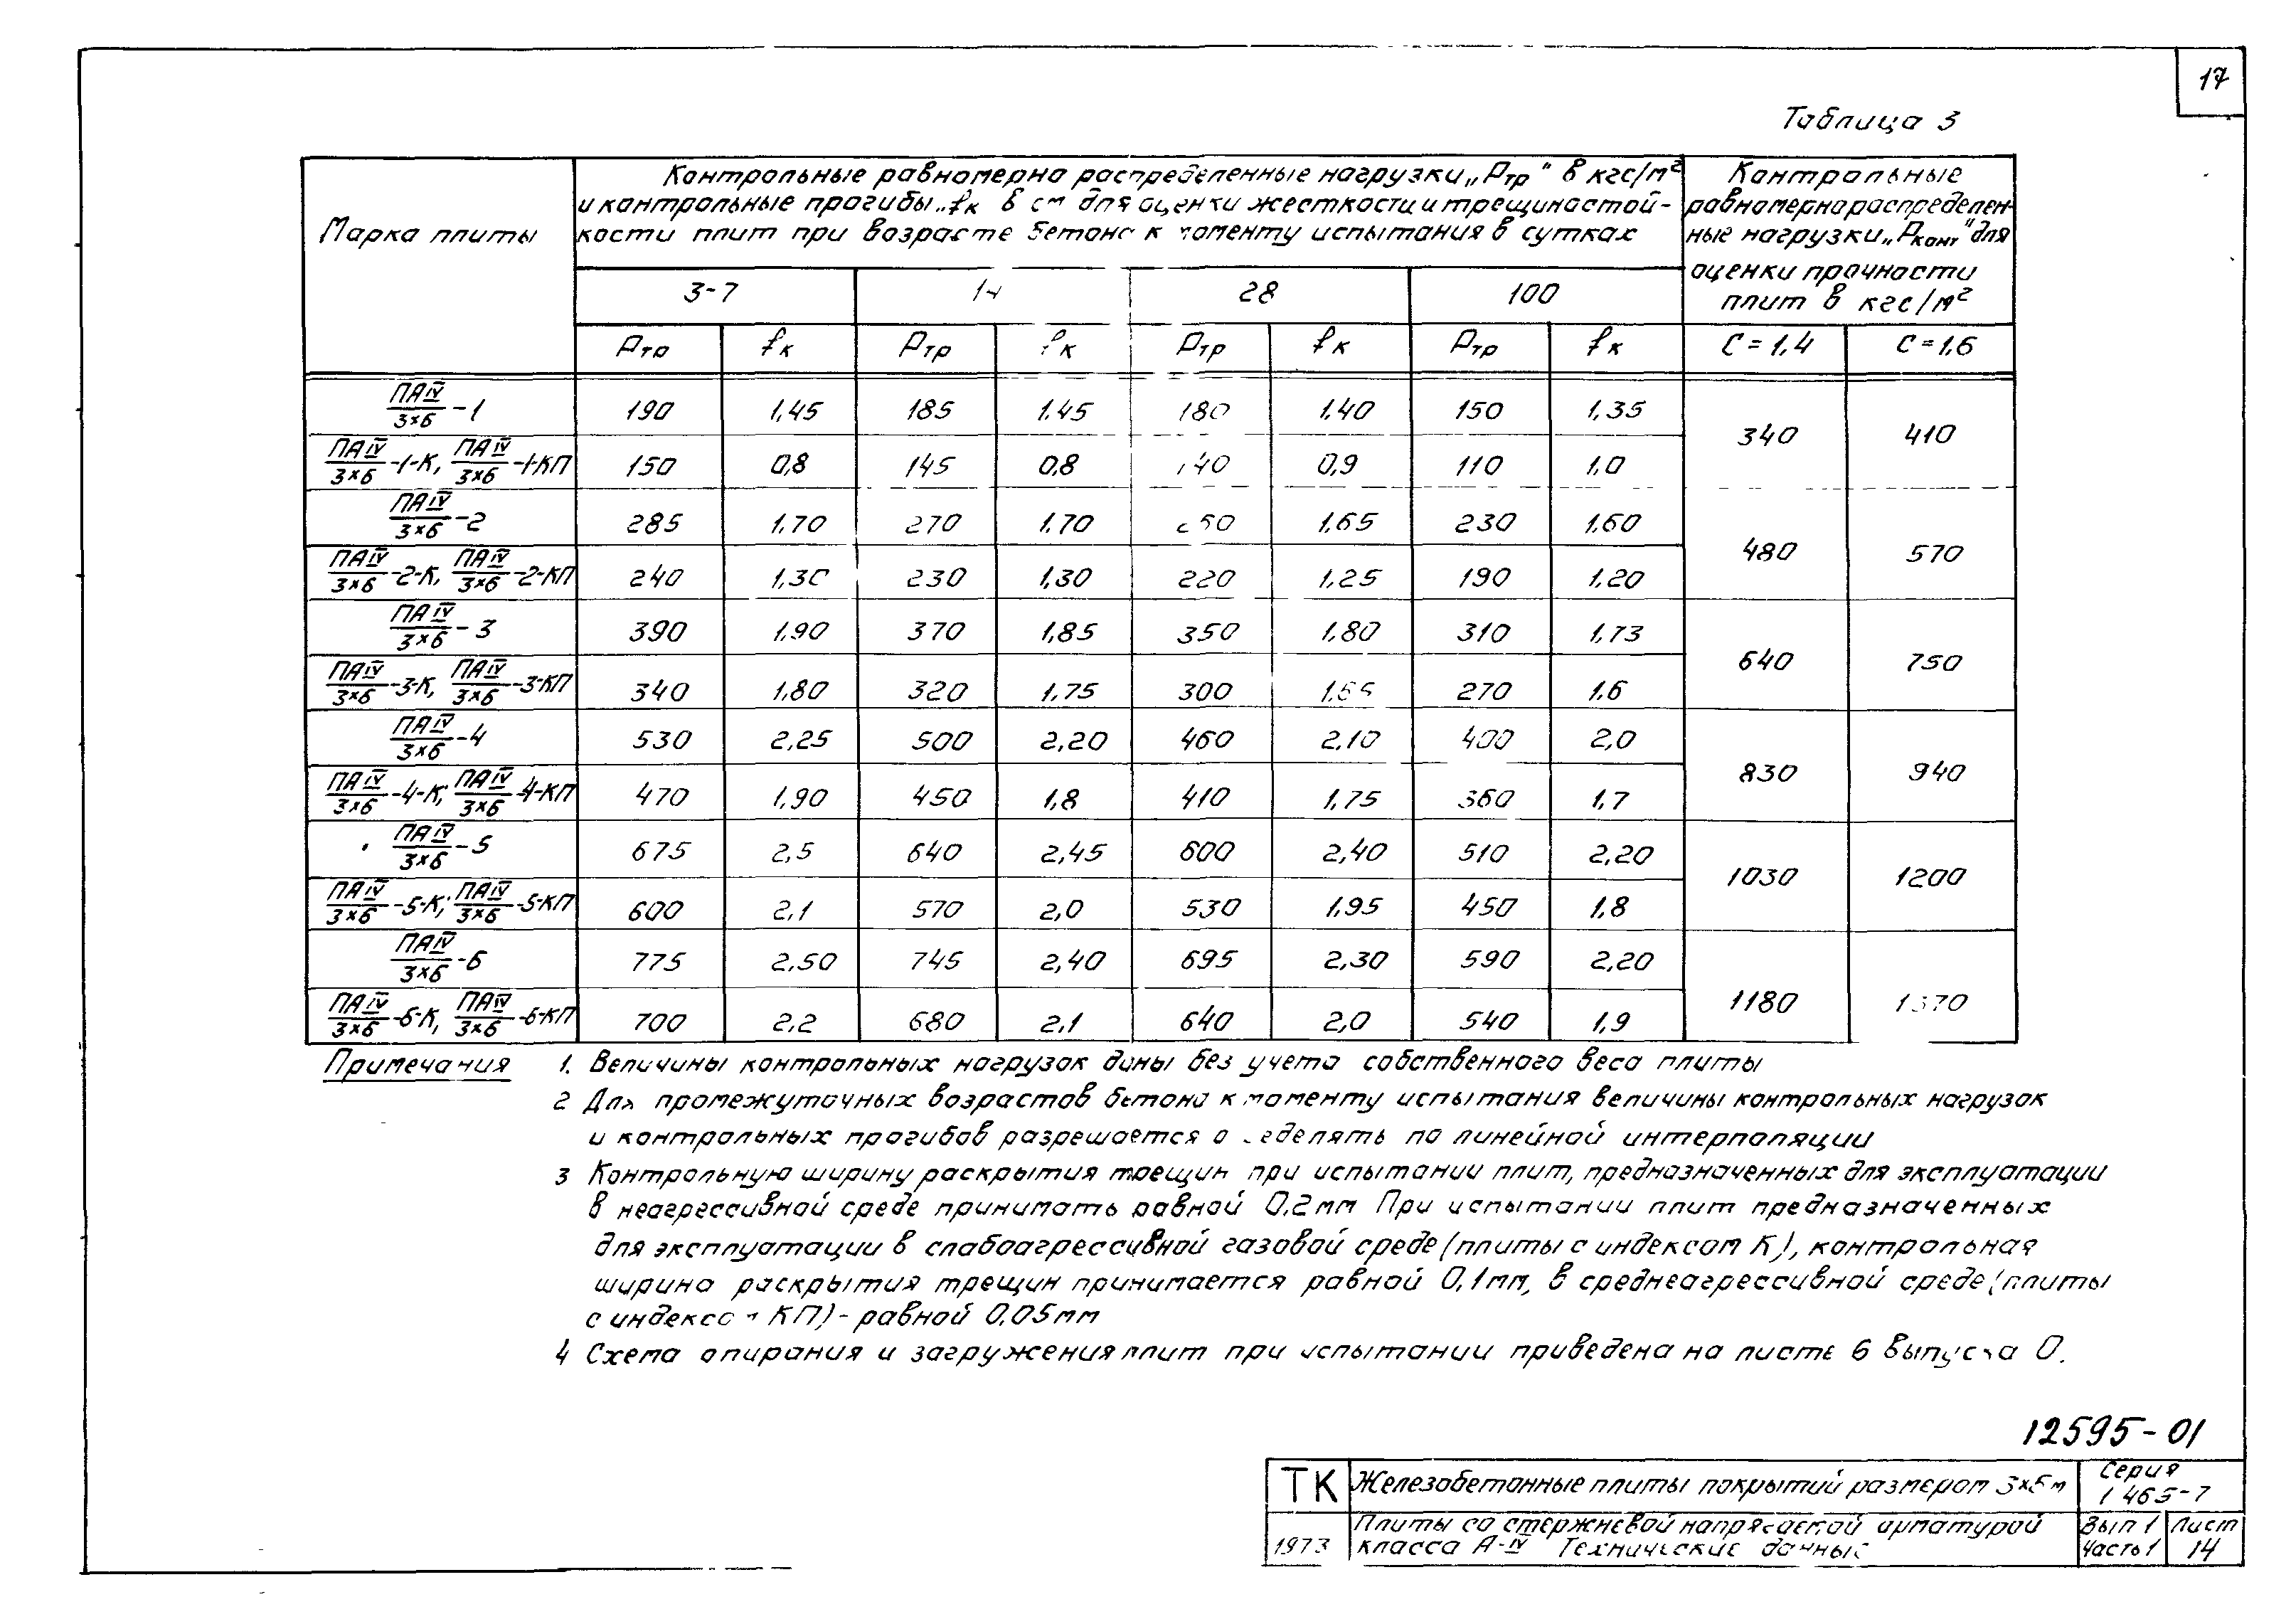 17
Таблица 3
Марка плиты
Контрольные равномерно распределенные нагрузки „Pтр" в кгс/м²
и контрольные прогибы „fк в см для оценки жесткости и трещиностой-
кости плит при возрасте бетона к моменту испытания в сутках
Контрольные
равномерно распределен-
ные нагрузки „Pконт" для
оценки прочности
плит в кгс/м²
3-7 14 28 100
Pтр fк Pтр fк Pтр fк Pтр fк C=1,4 C=1,6
ПАIV/3×6-1 190 1,45 185 1,45 180 1,40 150 1,35 340 410
ПАIV/3×6-1-К, ПАIV/3×6-1-КП 150 0,8 145 0,8 140 0,9 110 1,0
ПАIV/3×6-2 285 1,70 270 1,70 250 1,65 230 1,60 480 570
ПАIV/3×6-2-К, ПАIV/3×6-2-КП 240 1,30 230 1,30 220 1,25 190 1,20
ПАIV/3×6-3 390 1,90 370 1,85 350 1,80 310 1,73 640 750
ПАIV/3×6-3-К, ПАIV/3×6-3-КП 340 1,80 320 1,75 300 270 1,6
ПАIV/3×6-4 530 2,25 500 2,20 460 2,10 400 2,0 830 940
ПАIV/3×6-4-К; ПАIV/3×6-4-КП 470 1,90 450 1,8 410 1,75 360 1,7
ПАIV/3×6-5 675 2,5 640 2,45 600 2,40 510 2,20 1030 1200
ПАIV/3×6-5-К; ПАIV/3×6-5-КП 600 2,1 570 2,0 530 1,95 450 1,8
ПАIV/3×6-6 775 2,50 745 2,40 695 2,30 590 2,20 1180 1370
ПАIV/3×6-6-К, ПАIV/3×6-6-КП 700 2,2 680 2,1 640 2,0 540 1,9
Примечания 1. Величины контрольных нагрузок даны без учета собственного веса плиты
2 Для промежуточных возрастов бетона к моменту испытания величины контрольных нагрузок
и контрольных прогибов разрешается определять по линейной интерполяции
3 Контрольную ширину раскрытия трещин при испытании плит, предназначенных для эксплуатации
в неагрессивной среде принимать равной 0,2 мм При испытании плит предназначенных
для эксплуатации в слабоагрессивной газовой среде (плиты с индексом К), контрольная
ширина раскрытия трещин принимается равной 0,1 мм, в среднеагрессивной среде (плиты
с индексом КП) - равной 0,05 мм
4 Схема опирания и загружения плит при испытании приведена на листе 6 выпуска 0.
12595-01
ТК Железобетонные плиты покрытий размером 3×6 м Серия
1 465-7
1973 Плиты со стержневой напрягаемой арматурой
класса А-IV Технические данные
Вып 1 Лист
Часть 1 14